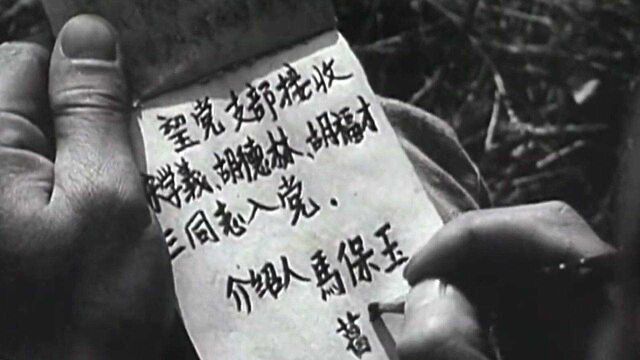 望党支部接收
宋学義、胡德林、胡福才
三同志入党.
介绍人馬保玉
葛